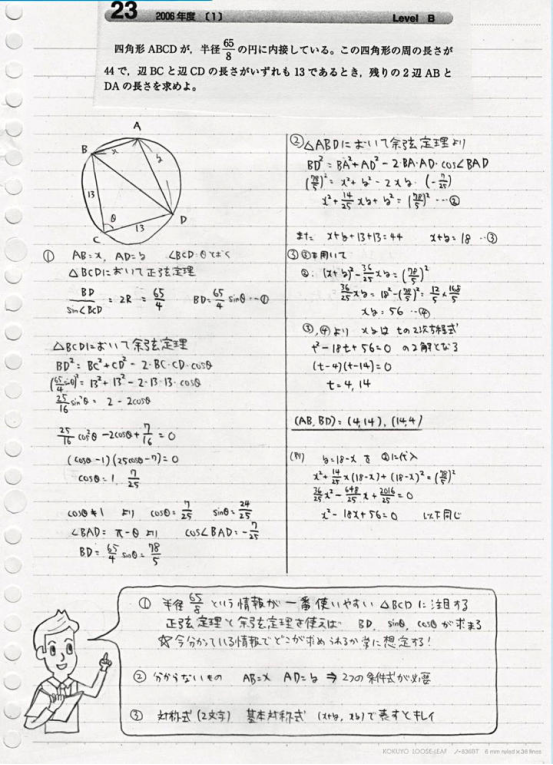 23 2006年度 〔1〕 Level B
四角形ABCDが，半径65/8の円に内接している。この四角形の周の長さが
44で，辺BCと辺CDの長さがいずれも13であるとき，残りの2辺ABと
DAの長さを求めよ。
A
B x y
13
θ 13 D
C
① AB=x, AD=y ∠BCD=θとおく
△BCDにおいて正弦定理
BD/sin∠BCD = 2R = 65/4 BD=65/4 sinθ…①
△BCDにおいて余弦定理
BD²=BC²+CD²-2・BC・CD・cosθ
(65/4 sinθ)²=13²+13²-2・13・13・cosθ
25/16 sin²θ = 2-2cosθ
25/16 cos²θ-2cosθ+7/16=0
(cosθ-1)(25cosθ-7)=0
cosθ=1, 7/25
cosθ≠1 より cosθ=7/25 sinθ=24/25
∠BAD=π-θ より cos∠BAD=-7/25
BD=65/4 sinθ=78/5
② △ABDにおいて余弦定理より
BD²=BA²+AD²-2・BA・AD・cos∠BAD
(78/5)²=x²+y²-2xy・(-7/25)
x²+14/25 xy+y²=(78/5)²…②
また x+y+13+13=44 x+y=18…③
③ ②を用いて
②: (x+y)²-36/25 xy=(78/5)²
36/25 xy=18²-(78/5)²=12/5×168/5
xy=56…④
③,④より xyはtの2次方程式
t²-18t+56=0 の2解となる
(t-4)(t-14)=0
t=4, 14
(AB,BD)=(4,14),(14,4)
(別) y=18-x を ②に代入
x²+14/25 x(18-x)+(18-x)²=(78/5)²
36/25 x²-648/25 x+2016/25=0
x²-18x+56=0 以下同じ
① 半径65/8という情報が一番使いやすい△BCDに注目する
正弦定理と余弦定理を使えば BD, sinθ, cosθが求まる
☆今分かっている情報でどこが求められるか常に想定する！
② 分からないもの AB=x AD=y ⇒ 2つの条件式が必要
③ 対称式(2文字) 基本対称式 (x+y, xy)で表すとキレイ
KOKUYO LOOSE-LEAF ノ-836BT 6 mm ruled x 36 lines